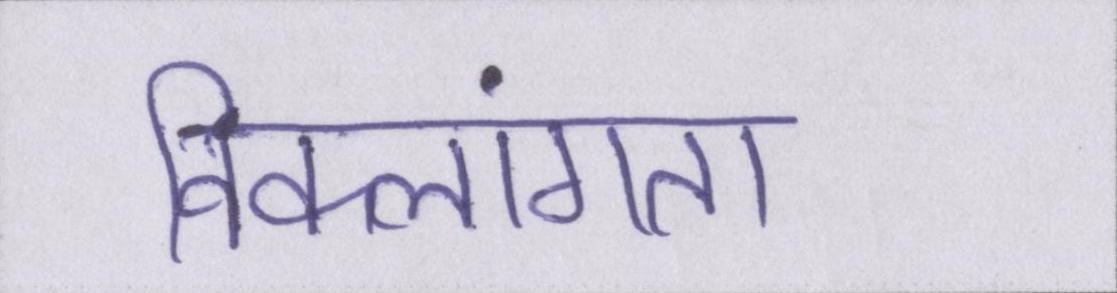 विकलांगता